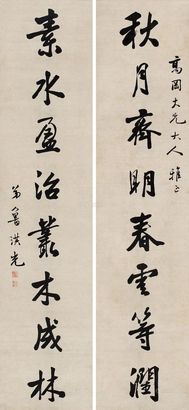 高岡大兄大人雅正
秋月齊明春雲等潤
素水盈沼叢木成林
弟魯琪光